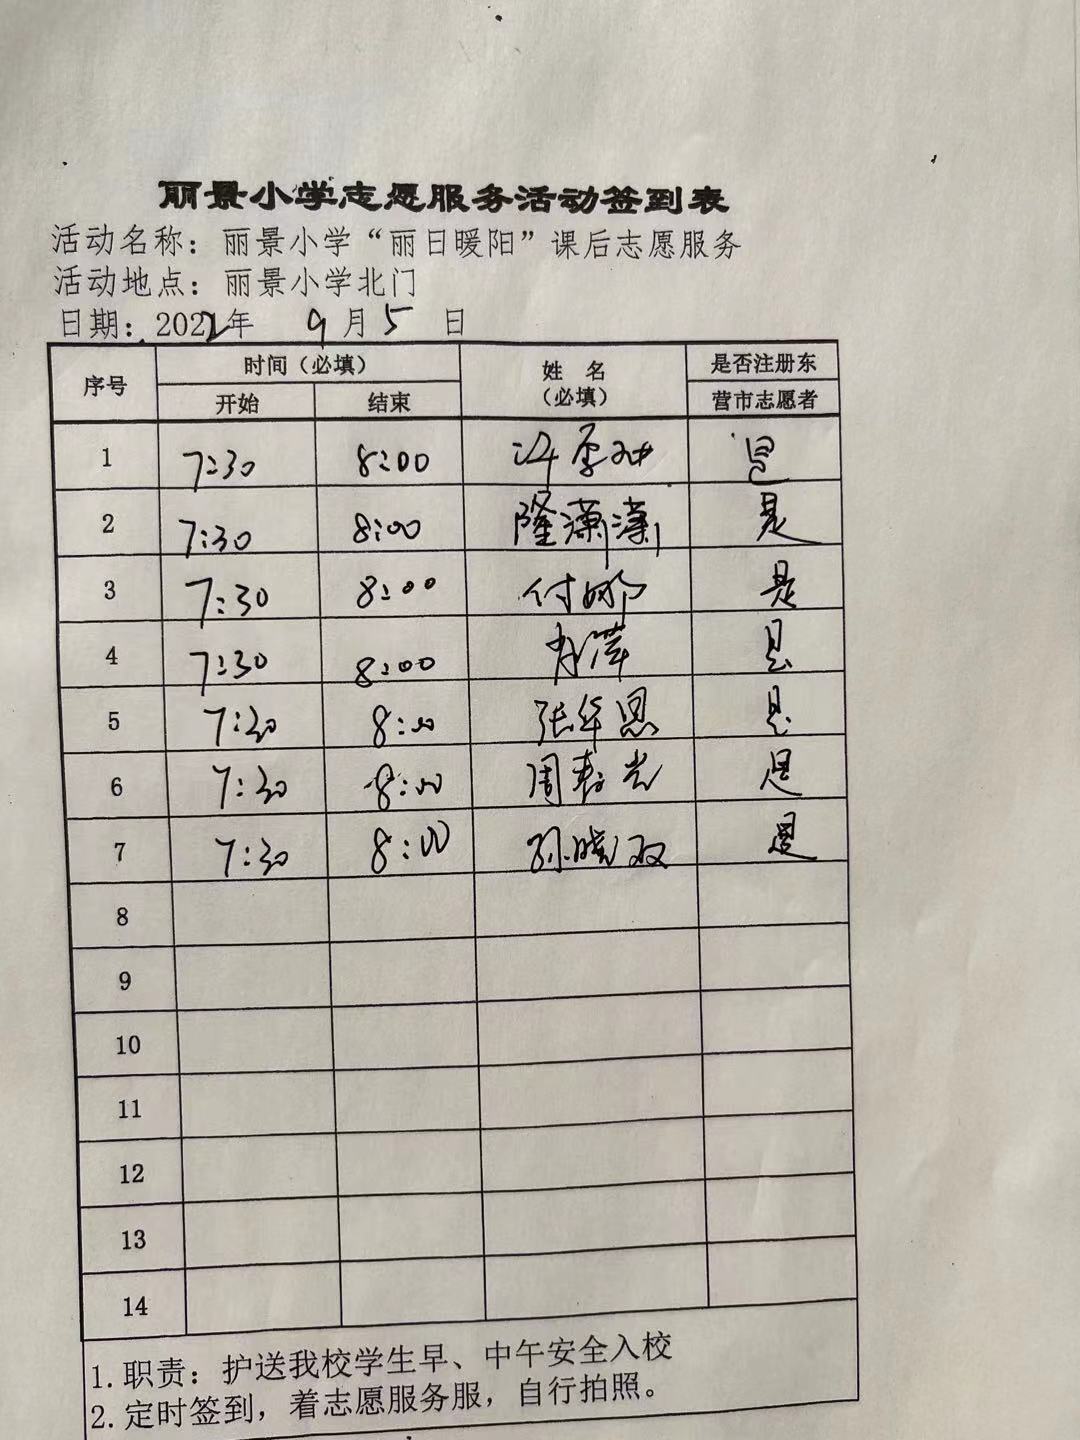 丽景小学志愿服务活动签到表
活动名称：丽景小学“丽日暖阳”课后志愿服务
活动地点：丽景小学北门
日期：2022年 9月5 日
序号 时间（必填） 姓 名（必填） 是否注册东营市志愿者
开始 结束
1 7:30 8:00 是
2 7:30 8:00 隆潇潇 是
3 7:30 8:00 付娜 是
4 7:30 8:00 肖萍 是
5 7:30 8:00 张华恩 是
6 7:30 8:00 周 光 是
7 7:30 8:00 孙晓双 是
8
9
10
11
12
13
14
1.职责：护送我校学生早、中午安全入校
2.定时签到，着志愿服务服，自行拍照。